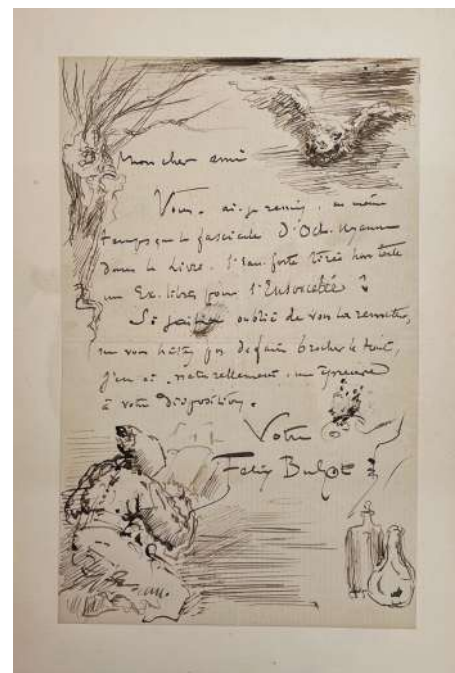 Mon cher ami
Vous ai-je remis, en même
temps que le fascicule d'Oct. Uzanne
dans le Livre, l'eau-forte tirée hors texte
un Ex. libris pour l'Ensorcelée ?
Si j'avais oublié de vous la remettre,
ne vous hâtez pas de faire brocher le tout,
j'en ai, naturellement, une épreuve
à votre disposition.
Votre
Felix Buhot